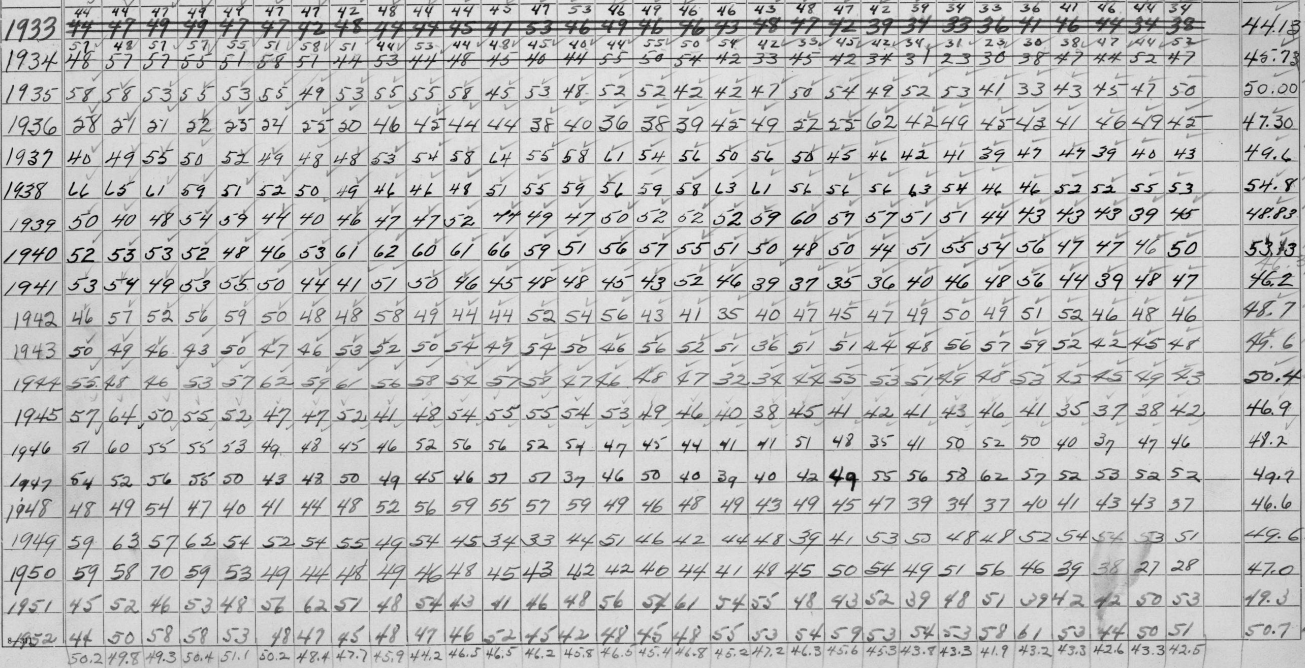 44 47 49 47 47 47 42 48 44 44 45 47 53 46 49 46 46 43 48 47 42 39 34 33 36 41 46 44 34
1933 44.13
57 48 57 57 55 51 58 51 44 53 44 48 45 40 44 55 50 54 42 33 45 42 34 31 23 30 38 47 44 52
1934 48 57 57 55 51 58 51 44 53 44 48 45 40 44 55 50 54 42 33 45 42 34 31 23 30 38 47 44 52 47 45.73
1935 58 58 53 55 53 55 49 53 55 55 58 45 53 48 52 52 42 42 47 50 54 49 52 53 41 33 43 45 47 50 50.00
1936 28 21 21 22 25 24 25 20 46 45 44 44 38 40 36 38 39 45 49 22 25 62 42 49 45 43 41 46 49 45 47.30
1937 40 49 55 50 52 49 48 48 53 54 58 64 55 58 61 54 56 50 56 50 45 46 42 41 39 47 47 39 40 43 49.6
1938 66 65 61 59 51 52 50 49 46 46 48 51 55 59 56 59 58 63 61 56 56 56 63 54 46 46 52 52 55 53 54.8
1939 50 40 48 54 59 44 40 46 47 47 52 44 49 47 50 52 52 52 59 60 57 57 51 51 44 43 43 43 39 45 48.83
1940 52 53 53 52 48 46 53 61 62 60 61 66 59 51 56 57 55 51 50 48 50 44 51 55 54 56 47 47 46 50 53.13
1941 53 54 49 53 55 50 44 41 51 50 46 45 48 48 45 43 52 46 39 37 35 36 40 46 48 56 44 39 48 47 46.2
1942 46 57 52 56 59 50 48 48 58 49 44 44 52 54 56 43 41 35 40 47 45 47 49 50 49 51 52 46 48 46 48.7
1943 50 49 46 43 50 47 46 53 52 50 54 49 54 50 46 56 52 51 36 51 51 44 48 56 57 59 52 42 45 48 49.6
1944 55 48 46 53 57 62 59 61 56 58 54 57 58 47 46 48 47 32 34 44 55 53 51 49 48 53 45 45 49 43 50.4
1945 57 64 50 55 52 47 47 52 41 48 54 55 55 54 53 49 46 40 38 45 41 42 41 43 46 41 35 37 38 42 46.9
1946 51 60 55 55 53 49 48 45 46 52 56 56 52 54 47 45 44 41 41 51 48 35 41 50 52 50 40 37 47 46 48.2
1947 54 52 56 55 50 43 48 50 49 45 46 51 57 37 46 50 40 39 40 42 49 55 56 58 62 57 52 53 52 52 49.7
1948 48 49 54 47 40 41 44 48 52 56 59 55 57 59 49 46 48 49 43 49 45 47 39 34 37 40 41 43 43 37 46.6
1949 59 63 57 62 54 52 54 55 49 54 45 34 33 44 51 46 42 44 48 39 41 53 50 48 48 52 54 54 53 51 49.6
1950 59 58 70 59 53 49 44 48 49 46 48 45 43 42 42 40 44 41 48 45 50 54 49 51 56 46 39 38 27 28 47.0
1951 45 52 46 53 48 56 62 51 48 54 43 41 46 48 56 54 61 54 55 48 43 52 39 48 51 39 42 42 50 53 49.3
1952 44 50 58 58 53 48 47 45 48 47 46 52 45 42 48 45 48 55 53 54 59 53 54 53 58 61 53 44 50 51 50.7
50.2 49.8 49.3 50.4 51.1 50.2 48.4 47.7 45.9 44.2 46.5 46.5 46.2 45.8 46.5 45.4 46.8 45.2 47.2 46.3 45.6 45.3 43.8 43.3 41.9 43.2 43.3 42.6 43.3 42.5